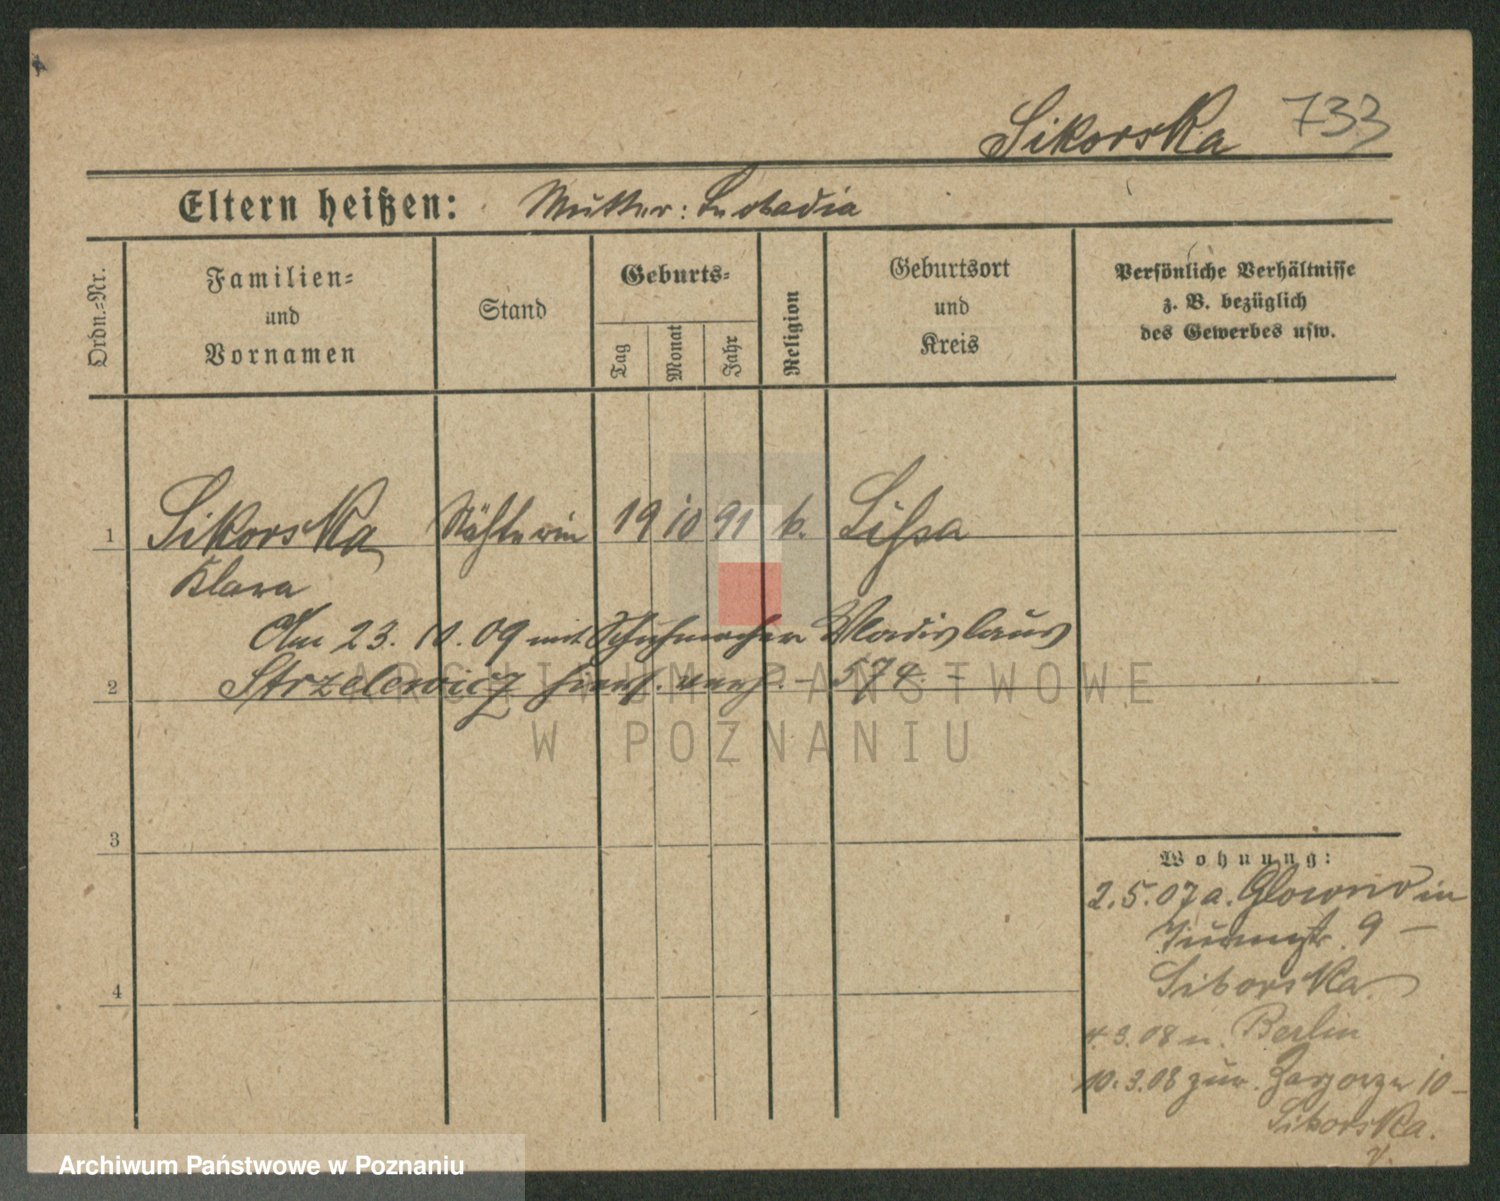 Sikorska 733
Eltern heißen: Mutter: Leokadia
Ordn.=Nr.
Familien=
und
Vornamen
Stand
Geburts=
Tag
Monat
Jahr
Religion
Geburtsort
und
Kreis
Persönliche Verhältnisse
z. B. bezüglich
des Gewerbes usw.
1 Sikorska Näherin 19 10 91 k. Lissa
Klara
Am 23. 10. 09 mit Schuhmacher Wladislaus
2 Strzelewicz hier verh. – 574. –
ARCHIWUM PAŃSTWOWE
W POZNANIU
3
Wohnung:
2.5.07 a. Glowno in
9 –
Sikorska
4
4.3.08 n. Berlin
10.3.08 zur. Zagorze 10 –
Sikorska.
Archiwum Państwowe w Poznaniu